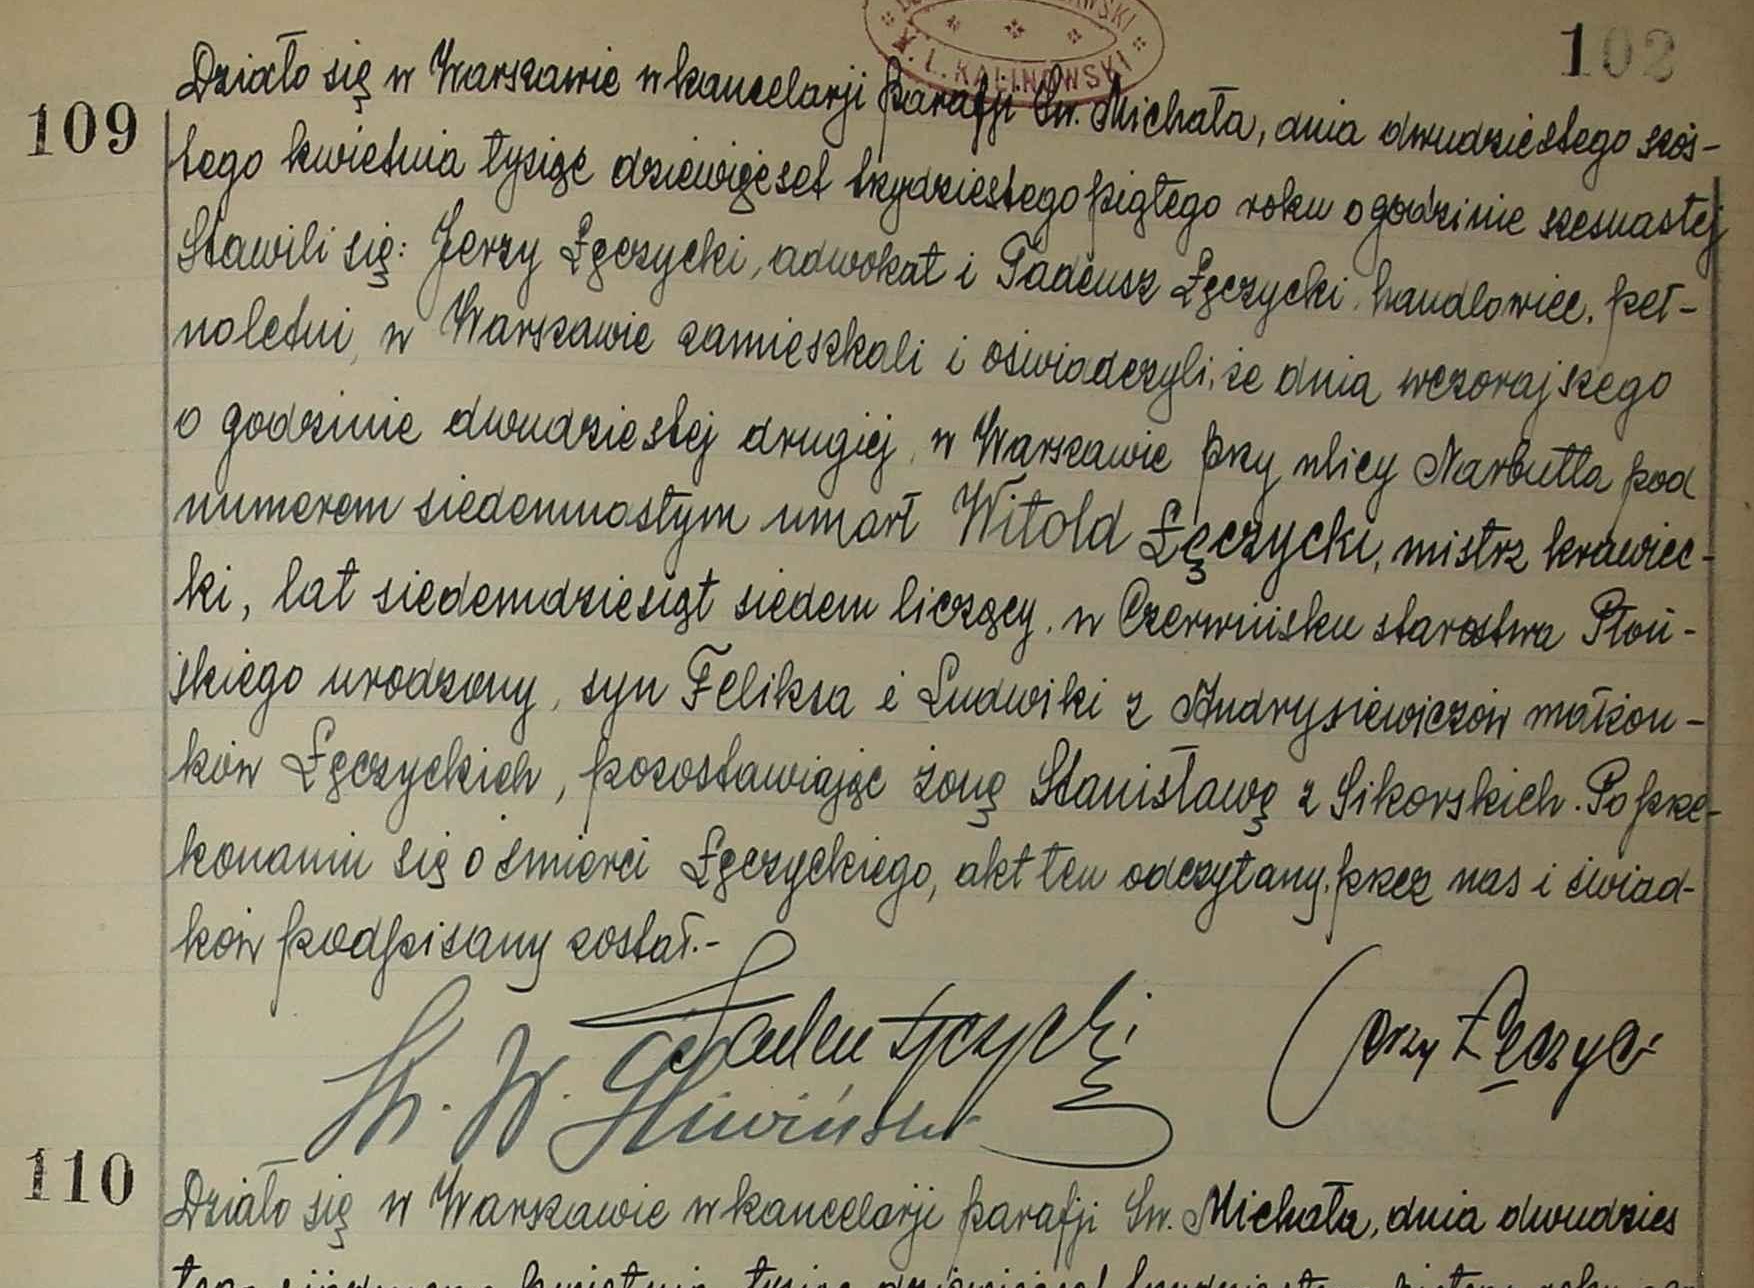 102
X. L. KALINOWSKI
109
Działo się w Warszawie w kancelarji parafji Św. Michała, dnia dwudziestego szós-
tego kwietnia tysiąc dziewięćset trzydziestego piątego roku o godzinie szesnastej
Stawili się: Jerzy Łęczycki, adwokat i Tadeusz Łęczycki, handlowiec, peł-
noletni, w Warszawie zamieszkali i oświadczyli, że dnia wczorajszego
o godzinie dwudziestej drugiej, w Warszawie przy ulicy Narbutta pod
numerem siedemnastym umarł Witold Łęczycki, mistrz krawiec-
ki, lat siedemdziesiąt siedem liczący, w Czerwińsku starostwa Płoń-
skiego urodzony, syn Feliksa i Ludwiki z Andrysiewiczów małżon-
ków Łęczyckich, pozostawiając żonę Stanisławę z Sikorskich. Po prze-
konaniu się o śmierci Łęczyckiego, akt ten odczytany, przez nas i świad-
ków podpisany został.-
Jerzy Łęczyc
110
Działo się w Warszawie w kancelarji parafji Św. Michała, dnia dwudzies